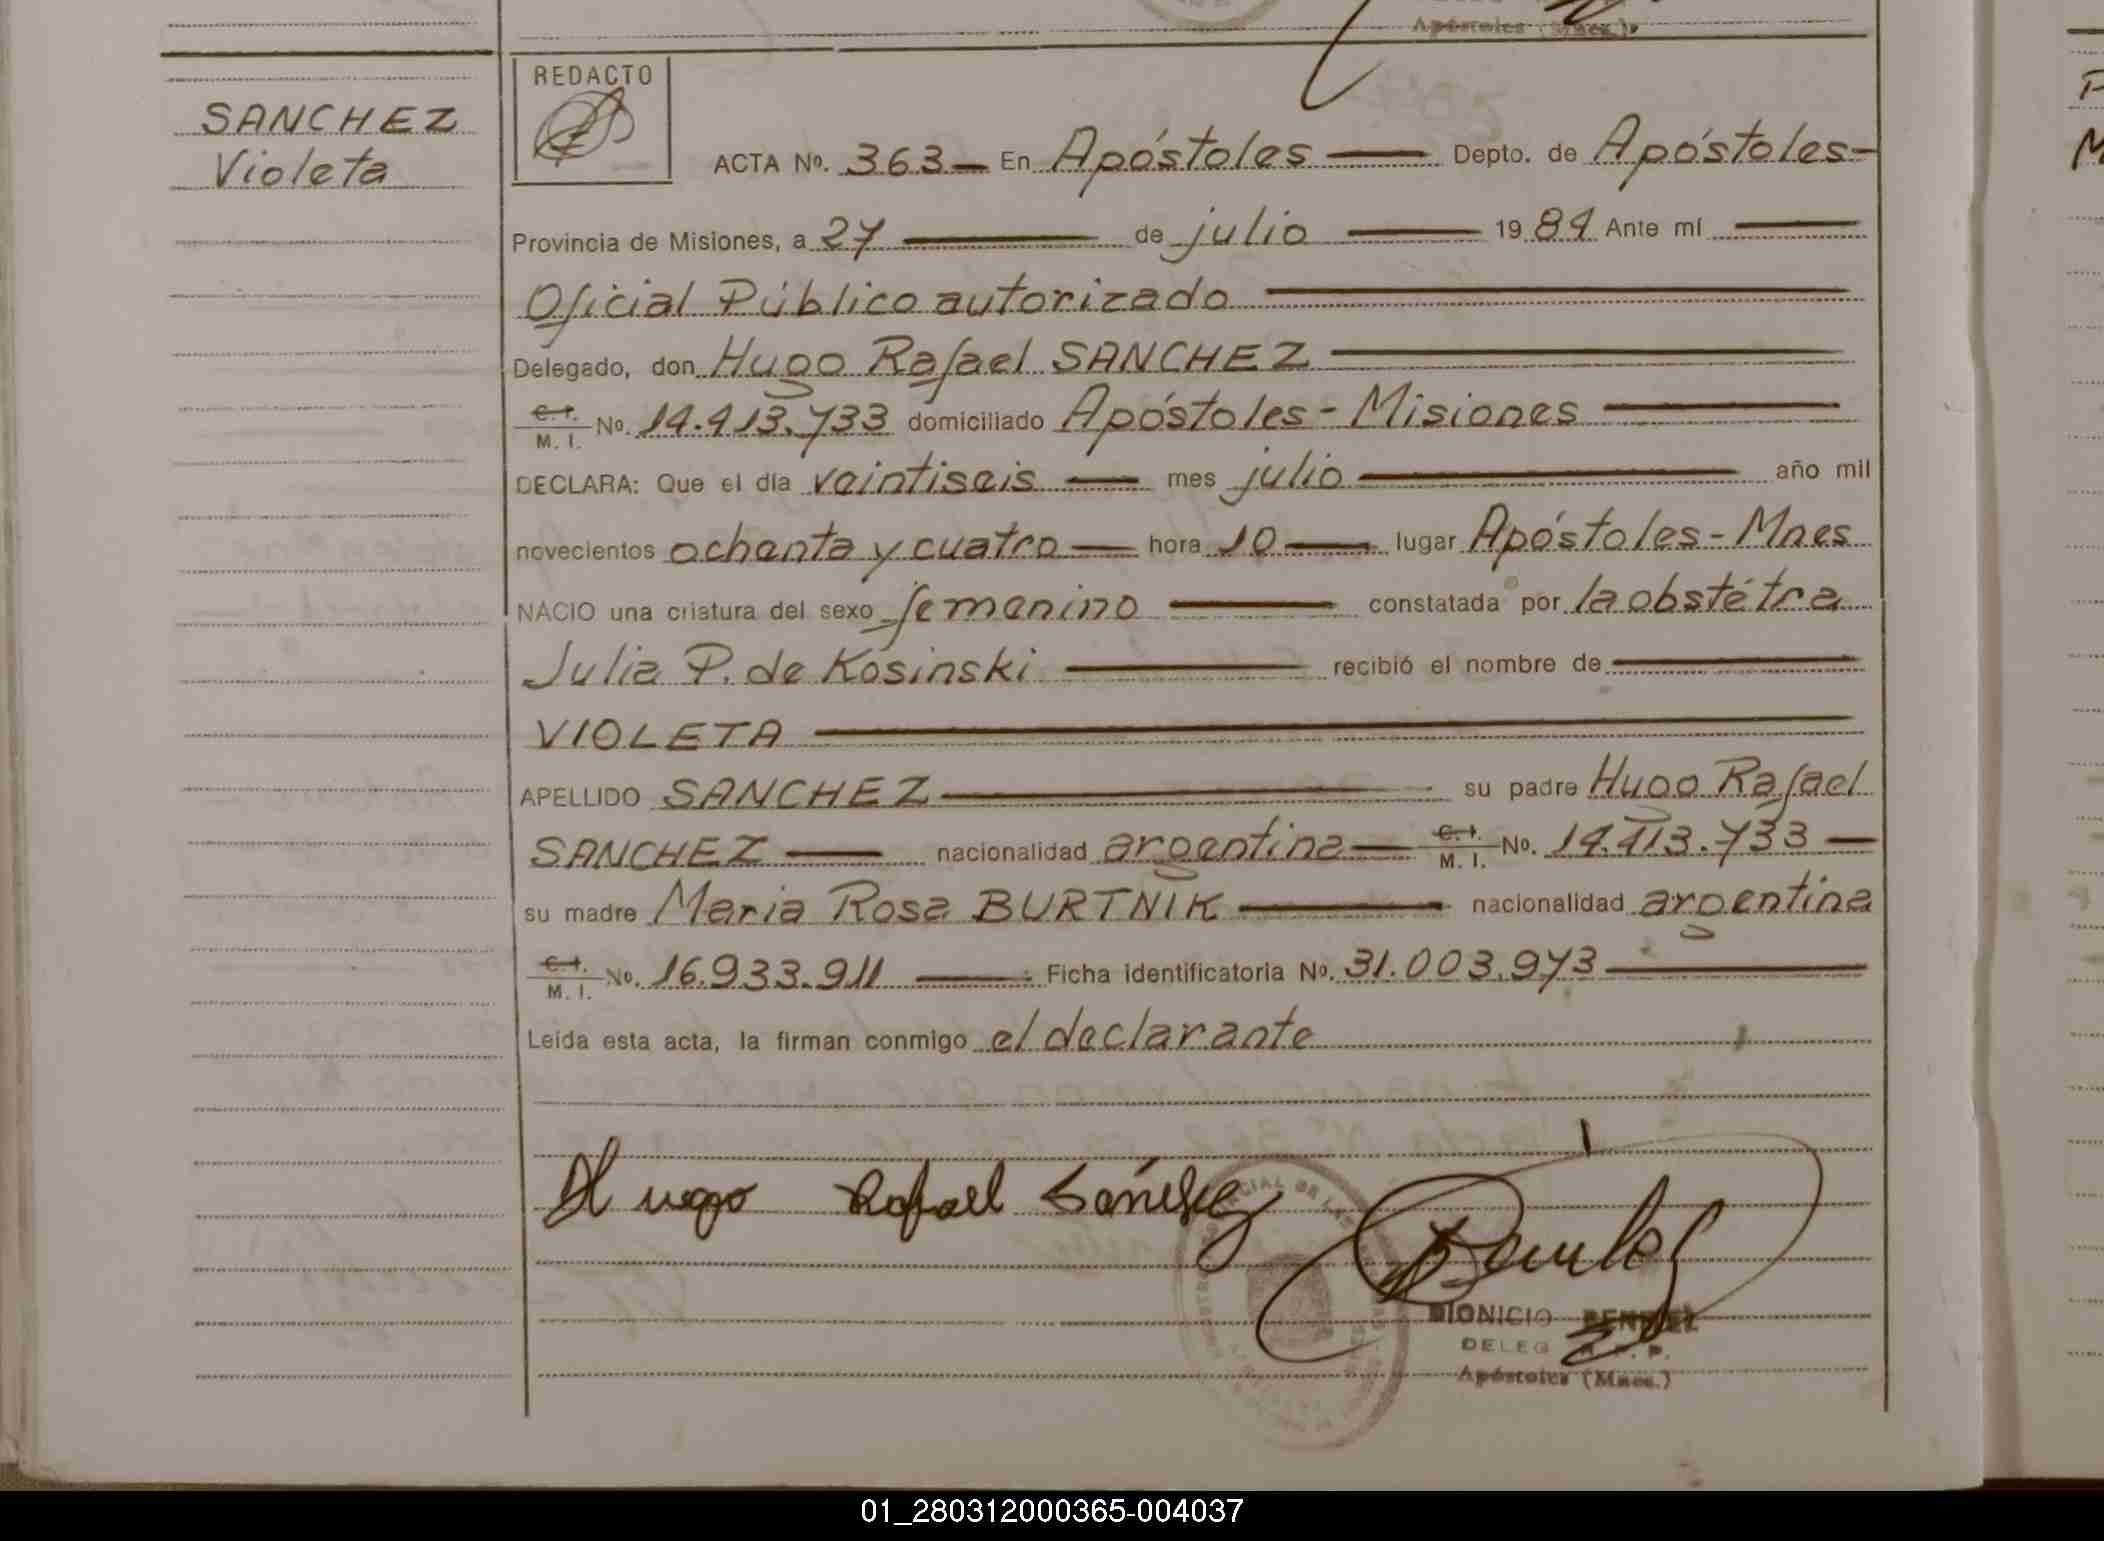 Apóstoles (Mnes.)
REDACTO
SANCHEZ
Violeta
ACTA Nº. 363 — En Apóstoles — Depto. de Apóstoles-
Provincia de Misiones, a 27 — de julio — 1984 Ante mí —
Oficial Público autorizado —
Delegado, don Hugo Rafael SANCHEZ —
C. I. / M. I. Nº. 14.413.733 domiciliado Apóstoles - Misiones —
DECLARA: Que el día veintiseis — mes julio — año mil
novecientos ochenta y cuatro — hora 10 — lugar Apóstoles - Mnes
NACIO una criatura del sexo femenino — constatada por la obstétra
Julia P. de Kosinski — recibió el nombre de —
VIOLETA —
APELLIDO SANCHEZ — su padre Hugo Rafael
SANCHEZ — nacionalidad argentina — C. I. / M. I. Nº. 14.413.733 —
su madre Maria Rosa BURTNIK — nacionalidad argentina
C. I. / M. I. Nº. 16.933.911 — Ficha identificatoria Nº. 31.003.973 —
Leída esta acta, la firman conmigo el declarante
Hugo Rafael Sánchez
DIONICIO
DELEG
Apóstoles (Mnes.)
01_280312000365-004037